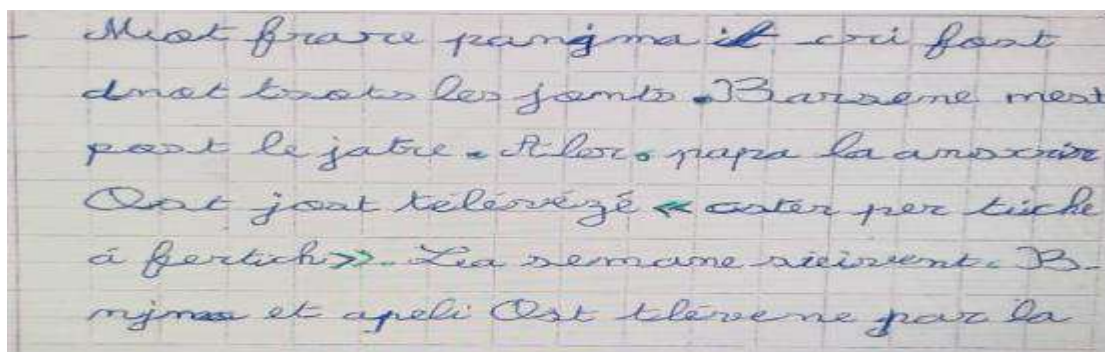 - Miot frare pangma it cri fost
dnot trots les jomts. Barsene mest
post le jatre. A lor. papa la anoxrir
Ost jost télévézé « coter per tiche
á fertich». La semane suivent. B-
njma et apeli Ost tlévene par la